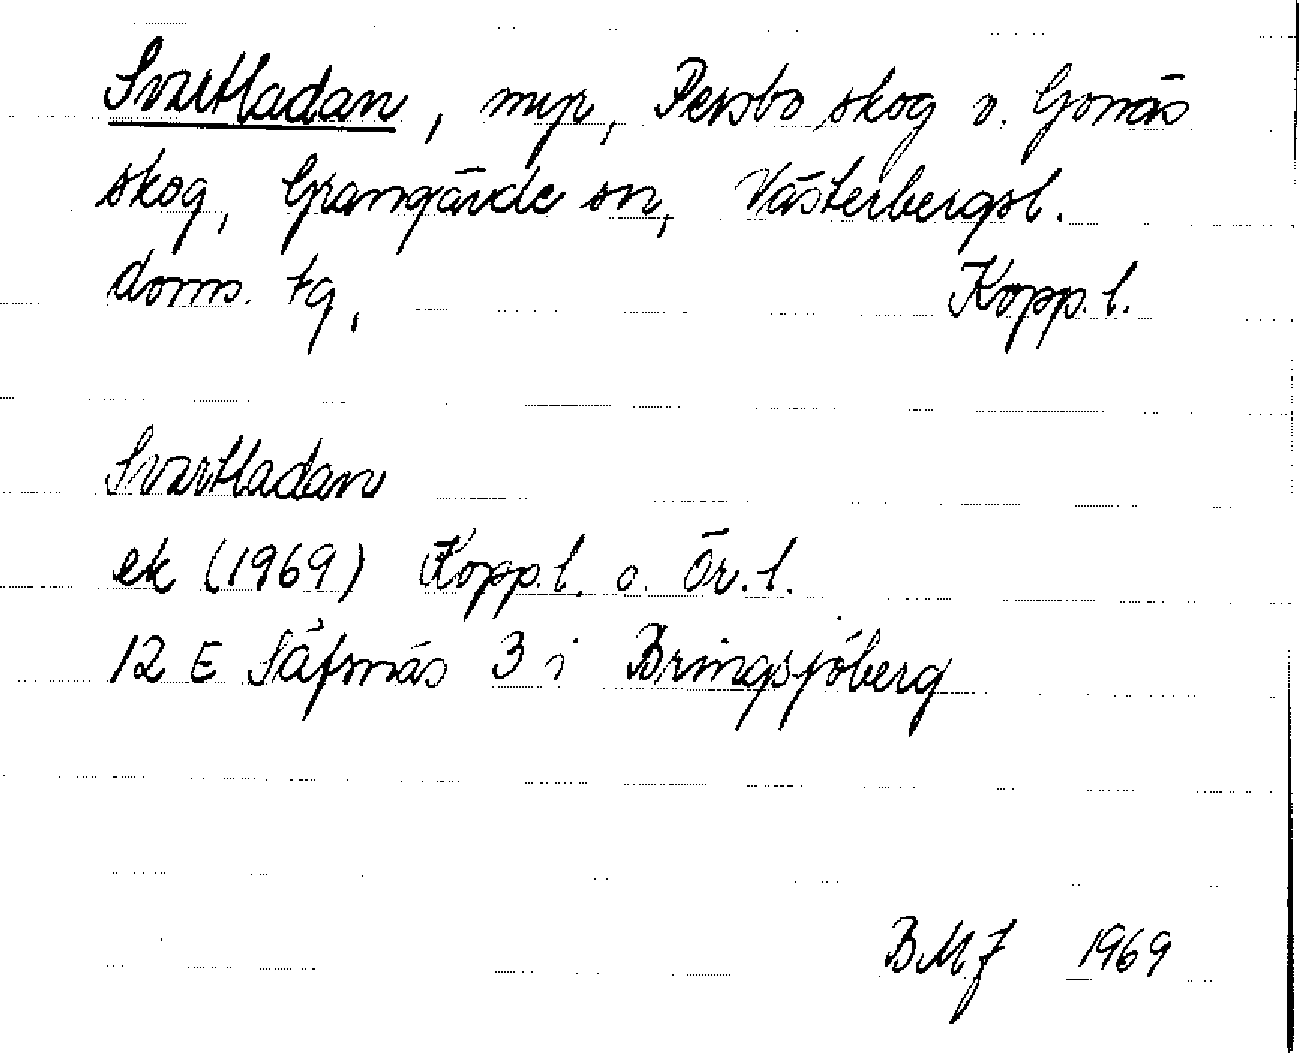 Svartladan, myr, Persbo skog o. Gonäs
skog, Grangärde sn, Västerbergsl.
doms. tg, Kopp. l.
Svartladan
ek (1969) Kopp. l. o. Ör. l.
12 E Säfsnäs 3 i Bringsjöberg
BMJ 1969